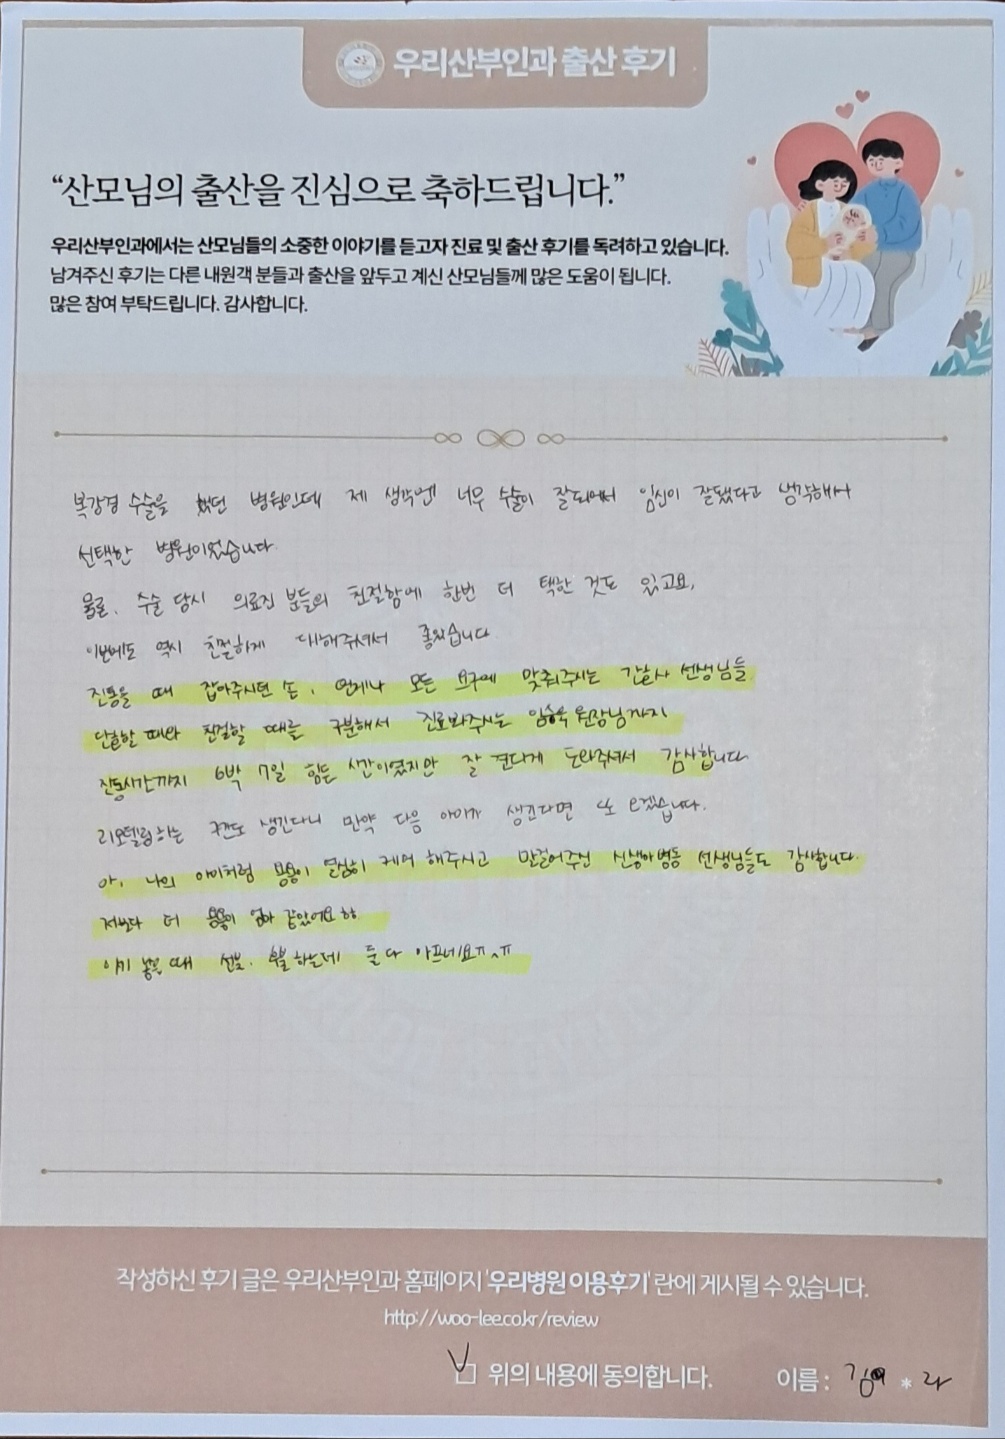 우리산부인과 출산 후기
“산모님의 출산을 진심으로 축하드립니다.”
우리산부인과에서는 산모님들의 소중한 이야기를 듣고자 진료 및 출산 후기를 독려하고 있습니다.
남겨주신 후기는 다른 내원객 분들과 출산을 앞두고 계신 산모님들께 많은 도움이 됩니다.
많은 참여 부탁드립니다. 감사합니다.
복강경 수술을 했던 병원인데 제 생각엔 너무 수술이 잘되어서 임신이 잘됐다고 생각해서
선택한 병원이었습니다.
물론, 수술 당시 의료진 분들의 친절함에 한번 더 택한 것도 있고요,
이번에도 역시 친절하게 대해주셔서 좋았습니다.
진통올 때 잡아주시던 손, 언제나 모든 요구에 맞춰주시는 간호사 선생님들
단호할 때와 친절할 때를 구분해서 진료봐주시는 원장님까지
진통시간까지 6박 7일 힘든 시간이였지만 잘 견디게 도와주셔서 감사합니다
리모델링하는 생긴다니 만약 다음 아이가 생긴다면 또 오겠습니다.
아, 나의 아이처럼 열심히 케어 해주시고 말걸어주신 신생아병동 선생님들도 감사합니다.
저보다 더 엄마 같았어요
아기 낳을 때 선불, 후불 하는데 둘 다 아프네요ㅠ^ㅠ
작성하신 후기 글은 우리산부인과 홈페이지 '우리병원 이용후기' 란에 게시될 수 있습니다.
http://woo-lee.co.kr/review
위의 내용에 동의합니다. 이름 : 김 * 라